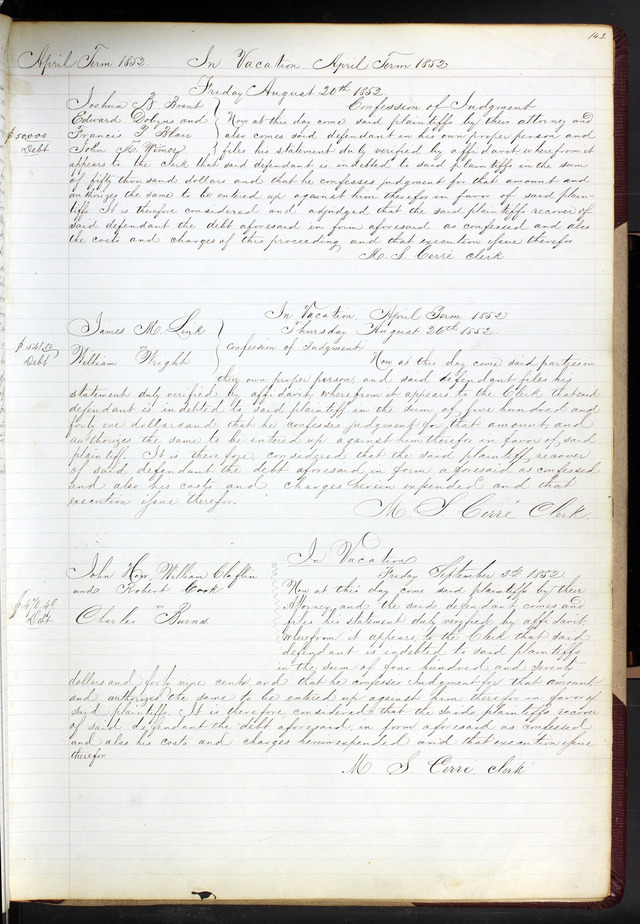 143
April Term 1852. In Vacation April Term 1852
Friday August 20th 1852
Joshua B Brant Confession of Judgment
Edward Dobyns and Now at this day come said plaintiffs by their attorney and
$50,000 Francis P Blair also comes said defendant in his own proper person and
Debt John M. Wimer files his statement duly verified by affidavit wherefrom it
appears to the clerk that said defendant is indebted to said plaintiff in the sum
of fifty thousand dollars and that he confesses judgment for that amount and
authorizes the same to be entered up against him therefor in favor of said plain-
tiffs. It is therefore considered and adjudged that the said plaintiffs recover of
said defendant the debt aforesaid in form aforesaid as confessed and also
the costs and charges of this proceeding and that execution issue therefor
M. S. Cerré clerk
In Vacation April Term 1852
James M. Link Thursday August 26th 1852
$541 Confession of Judgment
Debt William Wright Now at this day come said parties in
their own proper person, and said defendant files his
statement duly verified by affidavit wherefrom it appears to the Clerk that said
defendant is indebted to said plaintiff in the sum of five hundred and
forty one dollars and that he confesses judgment for that amount and
authorizes the same to be entered up against him therefor in favor of said
plaintiff. It is therefore considered that the said plaintiff recover
of said defendant the debt aforesaid in form aforesaid as confessed
and also his costs and charges herein expended and that
execution issue therefor.
M. S Cerré Clerk
In Vacation
John How, William Claflin Friday September 3rd 1852
and Robert Cook Now at this day come said plaintiffs by their
$470.49 Attorney and the said defendant comes and
Debt Charles Burns files his statement duly verified by affidavit
wherefrom it appears to the Clerk that said
defendant is indebted to said plaintiffs
in the sum of four hundred and seventy
dollars and forty nine cents and that he confesses Judgment for that amount
and authorizes the same to be entered up against him therefor in favor of
said plaintiffs It is therefore considered that the said plaintiffs recover
of said defendant the debt aforesaid in form aforesaid as confessed
and also his costs and charges herein expended and that execution issue
therefor
M S Cerre clerk